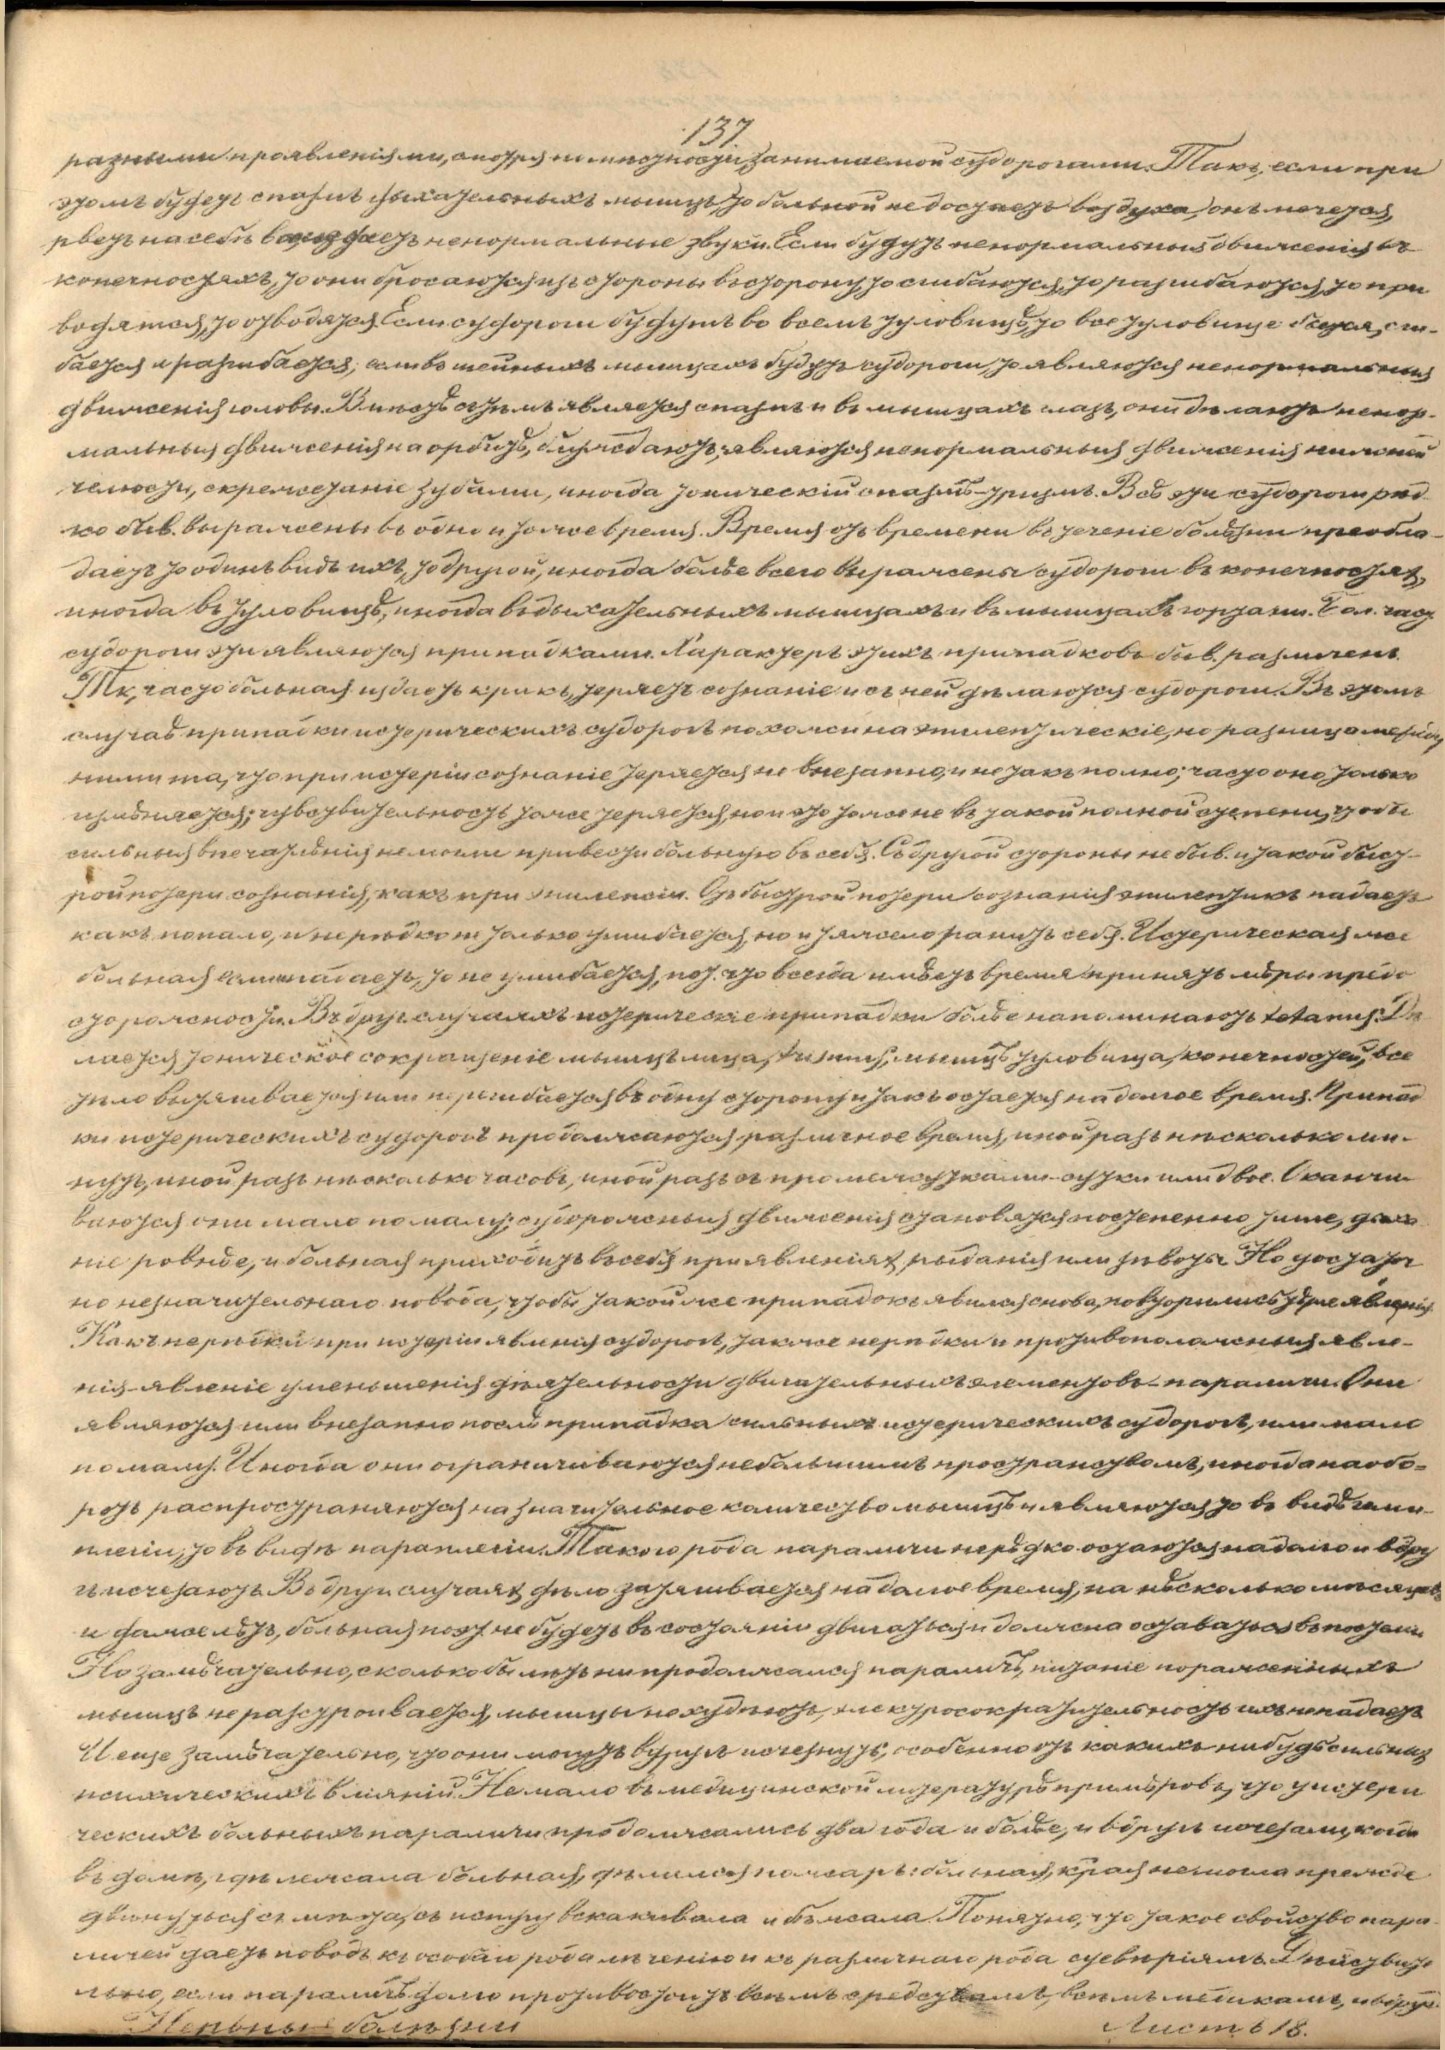 137.
разными проявленіями, смотря по мѣстности, занимаемой судорогами. Такъ, если при
этомъ будетъ спазмъ дыхательныхъ мышцъ, то больной недостаетъ воздуха, онъ мечется,
рветъ на себѣ издаетъ ненормальные звуки. Если будутъ ненормальныя движенія въ
конечностяхъ, то они бросаются изъ стороны въ сторону, то сгибаются, то разгибаются, то при
водятся, то отводятся. Если судороги будутъ во всемъ туловищѣ, то все туловище бьется, сги-
бается и разгибается; если въ шейныхъ мышцахъ будутъ судороги, то являются ненормальныя
движенія головы. Вмѣстѣ съ этимъ является спазмъ и въ мышцахъ глазъ, они дѣлаютъ ненор-
мальныя движенія на орбитѣ, блуждаютъ; являются ненормальныя движенія нижней
челюсти, скрежетаніе зубами, иногда тоническій спазмъ-тризмъ. Всѣ эти судороги рѣд
ко быв. выражены въ одно и тоже время. Время отъ времени въ теченіе болѣзни преобла-
даетъ то одинъ видъ ихъ, то другой, иногда болѣе всего выражены судороги въ конечностях,
иногда въ туловищѣ, иногда въ дыхательныхъ мышцахъ и въ мышцахъ гортани. Бол. част
судороги эти являются припадками. Характеръ этихъ припадковъ быв. различенъ.
Тк, часто больная издаетъ крикъ, теряетъ сознаніе и съ ней дѣлаются судороги. Въ этомъ
случаѣ припадки истерическихъ судорогъ похожи на эпилептическіе, но разница между
ними та, что при истеріи сознаніе теряется не внезапно, и не такъ полно; часто оно только
измѣняется; чувствительность тоже теряется, но и это тоже не въ такой полной степени, чтобы
сильныя впечатлѣнія не могли привести больную въ себя. Съ другой стороны не быв. и такой быст-
рой потери сознанія, какъ при эпилепсіи. Отъ быстрой потери сознанія эпилептикъ падаетъ
какъ попало, и нерѣдко не только ушибается, но и тяжело ранитъ себя. Истерическая же
больная если падаетъ, то не ушибается, пот. что всегда имѣетъ время принять мѣры предо
сторожности. Въ друг. случаяхъ истерическіе припадки болѣе напоминаютъ tetanus: Дѣ
лается тоническое сокращеніе мышцъ лица, мышцъ туловища, конечностей, все
тѣло вытягивается или перегибается въ одну сторону и такъ остается надолгое время. Припад
ки истерическихъ судорогъ продолжаются различное время, иной разъ нѣсколько ми-
нутъ, иной разъ нѣсколько часовъ, иной разъ съ промежутками-сутки или двое. Оканчи
ваются они мало по малу; судорожныя движенія становятся постепенно тише, дыха
ніе ровнѣе, и больная приходитъ въ себя при явленіях рыданія или зѣвоты. Но достаточ
но незначительнаго повода, чтобы такой же припадокъ явился снова, повторились тѣже явленія.
Какъ нерѣдки при истеріи явленія судорогъ, такъ же нерѣдки и противоположныя явле-
нія-явленіе уменьшенія дѣятельности двигательныхъ элементовъ-параличи. Они
являются или внезапно послѣ припадка сильныхъ истерическихъ судорогъ, или мало
по малу. Иногда они ограничиваются небольшимъ пространствомъ, иногда наобо-
ротъ распространяются на значительное количество мышцъ и являются то въ видѣ геми-
плегіи, то въ видѣ параплегіи. Такого рода параличи нерѣдко остаются надолго и вдру
гъ исчезаютъ. Въ друг. случаях дѣло затягивается на долгое время, на нѣсколько мѣсяцевъ
и даже лѣтъ, больная поэт. не будетъ въ состояніи двигаться и должна оставаться въ постели.
Но замѣчательно, сколько бы лѣтъ ни продолжался параличъ, питаніе пораженныхъ
мышцъ не разстроивается, мышцы не худѣютъ, электросократительность ихъ не падаетъ.
И еще замѣчательно, что они могутъ вдругъ исчезнуть, особенно отъ какихъ нибудь сильных
психическихъ вліяній. Не мало въ медицинской литературѣ примѣровъ, что у истери
ческихъ больныхъ параличи продолжались два года и болѣе, и вдругъ исчезали, когда
въ домѣ, гдѣ лежала больная, дѣлался пожаръ: больная, кˉрая не могла прежде
двинуться съ мѣста, съ испугу вскакивала и бѣжала. Понятно, что такое свойство пара-
личей даетъ поводъ къ особаго рода лѣченію и къ различнаго рода суевѣріямъ. Дѣйствите
льно, если параличъ долго противостоитъ всѣмъ средствамъ, всѣмъ медикамъ, и вдругъ
Нервныя болѣзни Листъ 18.